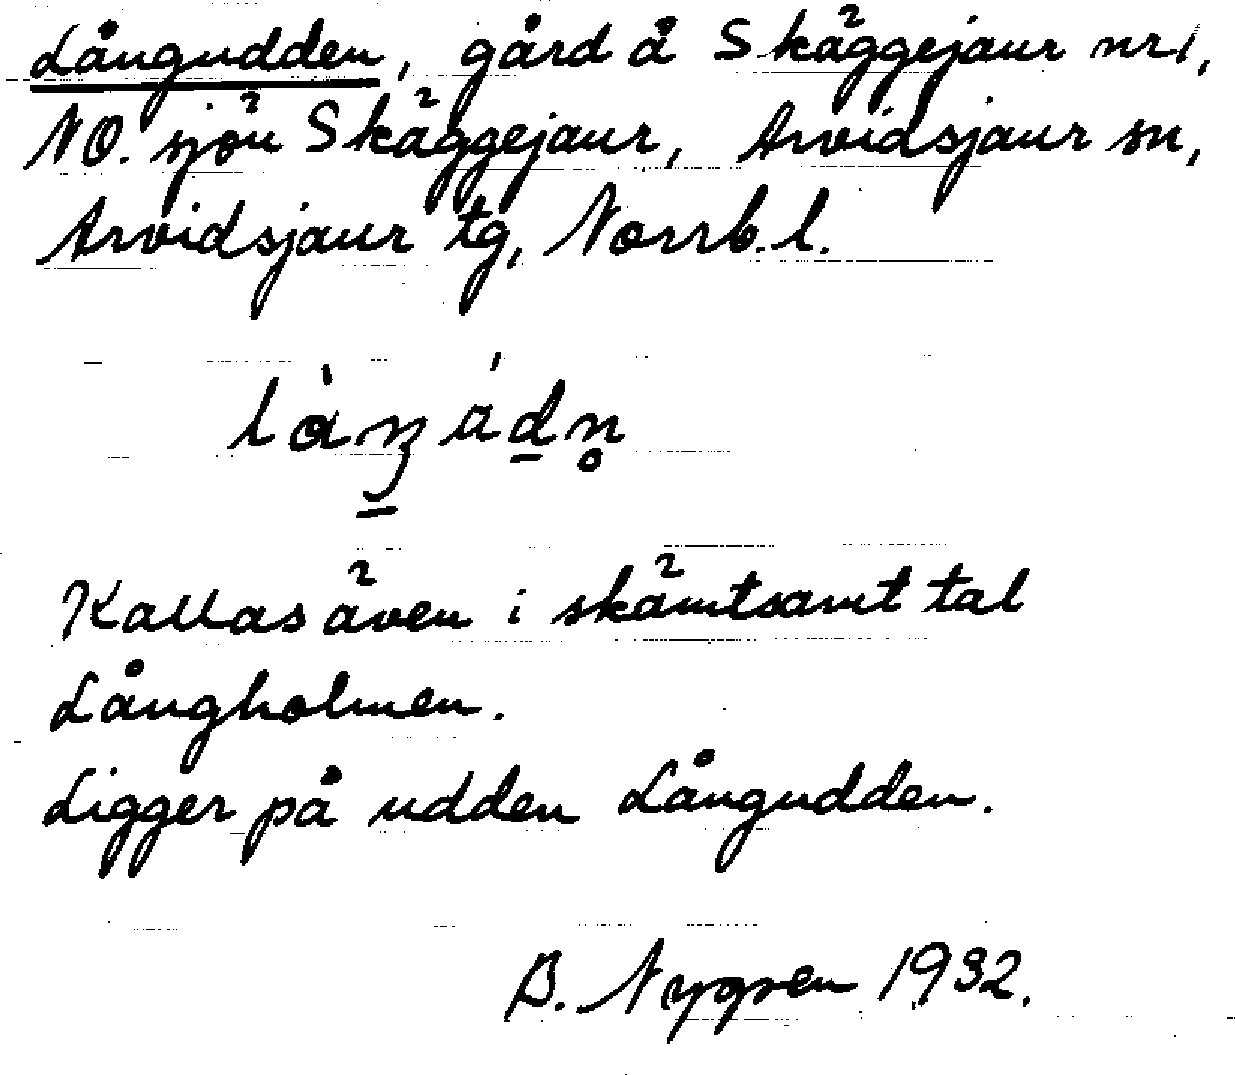 Långudden, gård å Skäggejaur nr 1,
NO. sjön Skäggejaur, Arvidsjaur sn,
Arvidsjaur tg, Norrb. l.
Kallas även i skämtsamt tal
Långholmen.
Ligger på udden Långudden.
B. Nygren 1932.